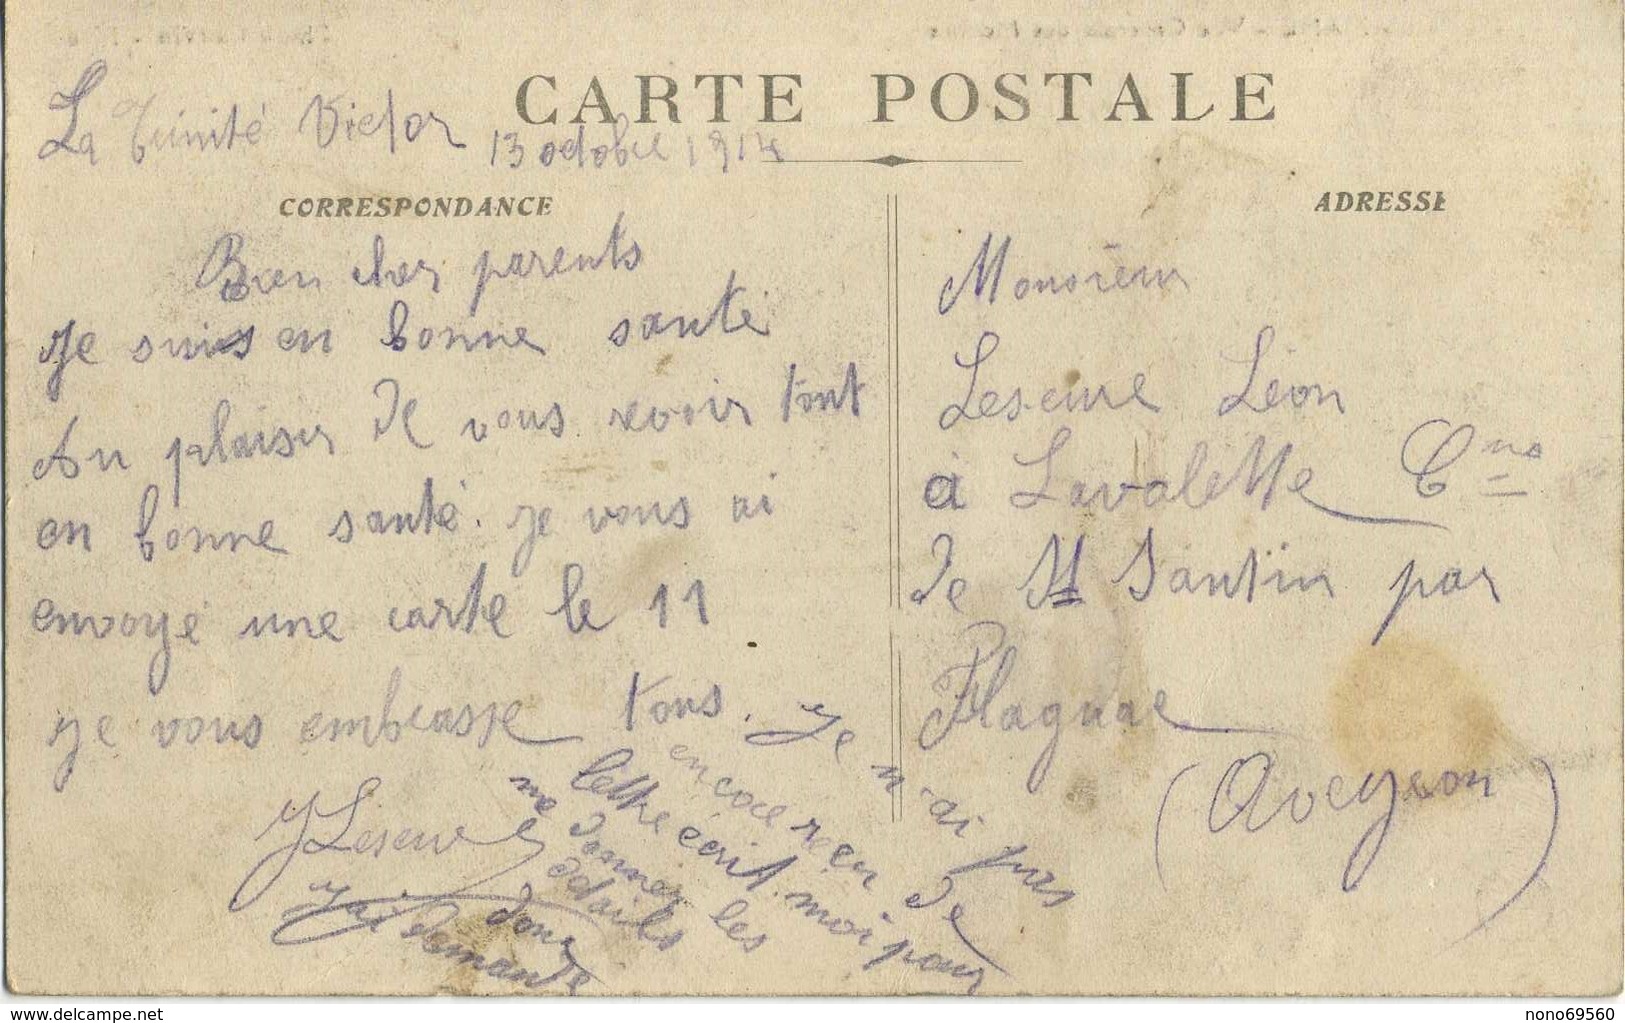 CARTE POSTALE
La Trinité Victor 13 octobre 1914
CORRESPONDANCE
Bien cher parents
Je suis en bonne santé
Au plaisir de vous revoir tout
en bonne santé. Je vous ai
envoyé une carte le 11
Je vous embrasse tous.
J Leseure
Je n'ai pas
encore reçu de
lettre écrit moi pour
me donner les
détails dont
j'ai demande
ADRESSE
Monsieur
Leseure Léon
à Lavalette Cne
de St Santin par
Flagnac
(Aveyron)
delcampe.net
nono69560